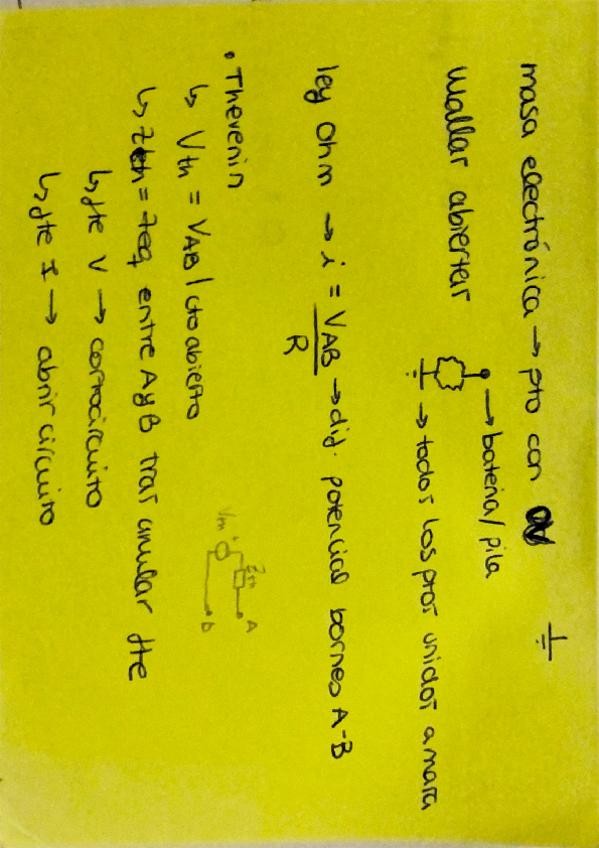 masa electrónica → pto con 0V
mallas abiertas
→ batería/pila
→ todos los ptos unidos a masa
ley Ohm → i = VAB / R → dif. potencial bornes A-B
• Thevenin
↳ Vth = VAB | cto abierto
↳ Zth = Zeq entre A y B tras anular fte
↳ fte V → cortocircuito
↳ fte I → abrir circuito
Vth + Zth A b